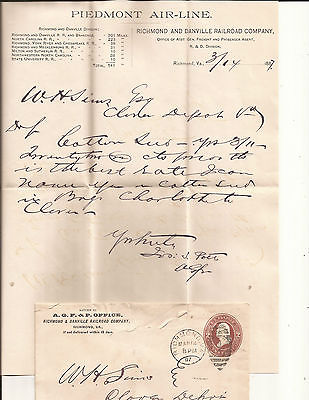 PIEDMONT AIR-LINE.
RICHMOND AND DANVILLE DIVISION:
RICHMOND AND DANVILLE R. R., AND BRANCHES, 201 MILES.
NORTH CAROLINA R. R., 223
RICHMOND, YORK RIVER AND CHESAPEAKE R. R.,
RICHMOND AND MECKLENBURG R. R.,
MILTON AND SUTHERLIN R. R.,
NORTHWESTERN NORTH CAROLINA,
STATE UNIVERSITY R. R.,
TOTAL,
RICHMOND AND DANVILLE RAILROAD COMPANY,
OFFICE OF ASST. GEN. FREIGHT AND PASSENGER AGENT,
R. & D. DIVISION.
RICHMOND, VA., 3/14 1887.
W. H. Sims Esq
Clover Depot Va
Dr Sir
Cotton Seed - Yrs 3/11 -
Twenty cts
is the best rate I can
name you Cotton Seed
in Bags Charlotte to
Clover
Yr truly
Sol
A. G. F. & P. OFFICE,
RICHMOND & DANVILLE RAILROAD COMPANY,
RICHMOND, VA.
If not delivered within 10 days.
RICHMOND
MAR 14
8 PM
87
W H Sims
Esq
Clover Depot